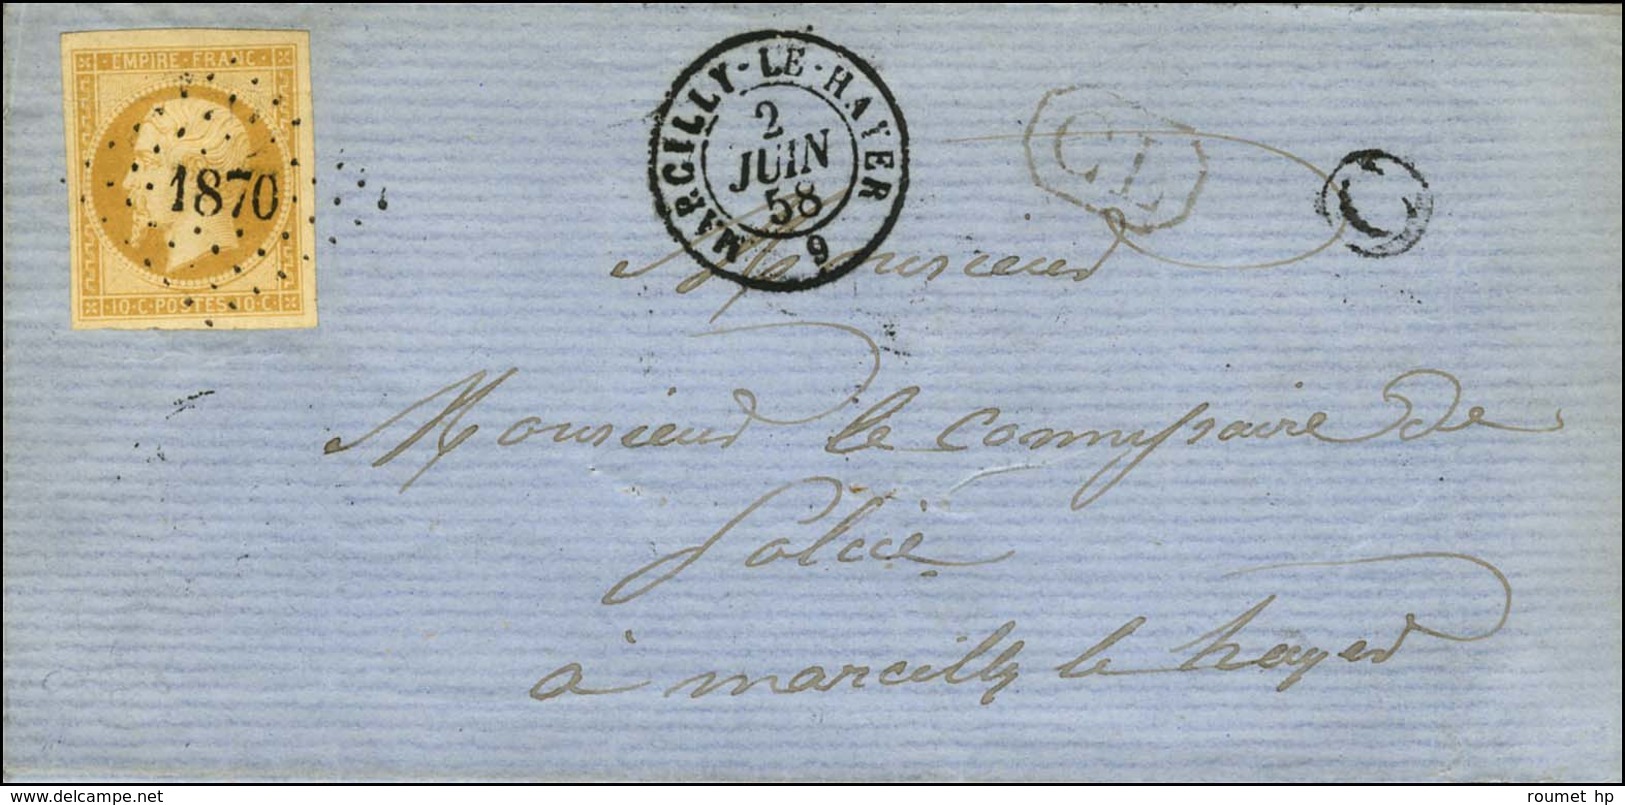 EMPIRE · FRANC ·
1870
10·C·POSTES·10·C·
MARCILLY-LE-HAYER
2
JUIN
58
9
CL
C
Monsieur
Monsieur le Commissaire de
Police
à marcilly le hayer
www.delcampe.net
roumet hp